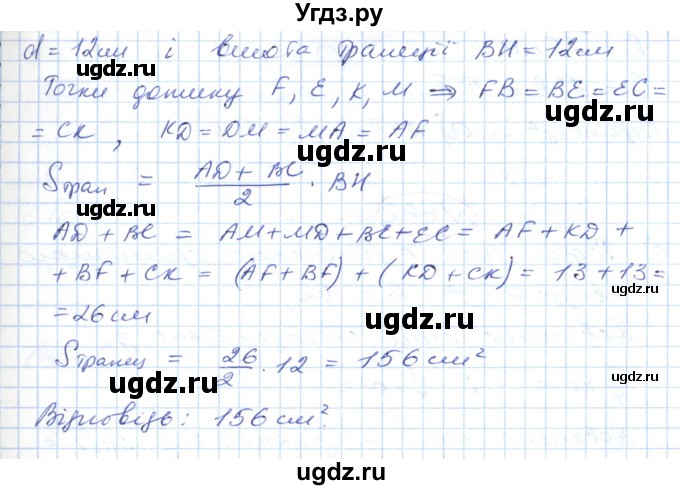 Угдз.ру
d = 12см і висота трапеції BH = 12см
Точки дотику F, E, K, M ⇒ FB = BE = EC =
= CK , KD = DM = MA = AF
Sтрап = (AD + BC)/2 · BH
AD + BC = AM + MD + BE + EC = AF + KD +
+ BF + CK = (AF + BF) + (KD + CK) = 13 + 13 =
= 26 см
Sтрапец = 26/2 · 12 = 156 см²
Відповідь: 156 см².
ugdz.ru
ugdz.ru
ugdz.ru
ugdz.ru
ugdz.ru
ugdz.ru
ugdz.ru
ugdz.ru
ugdz.ru
ugdz.ru
ugdz.ru